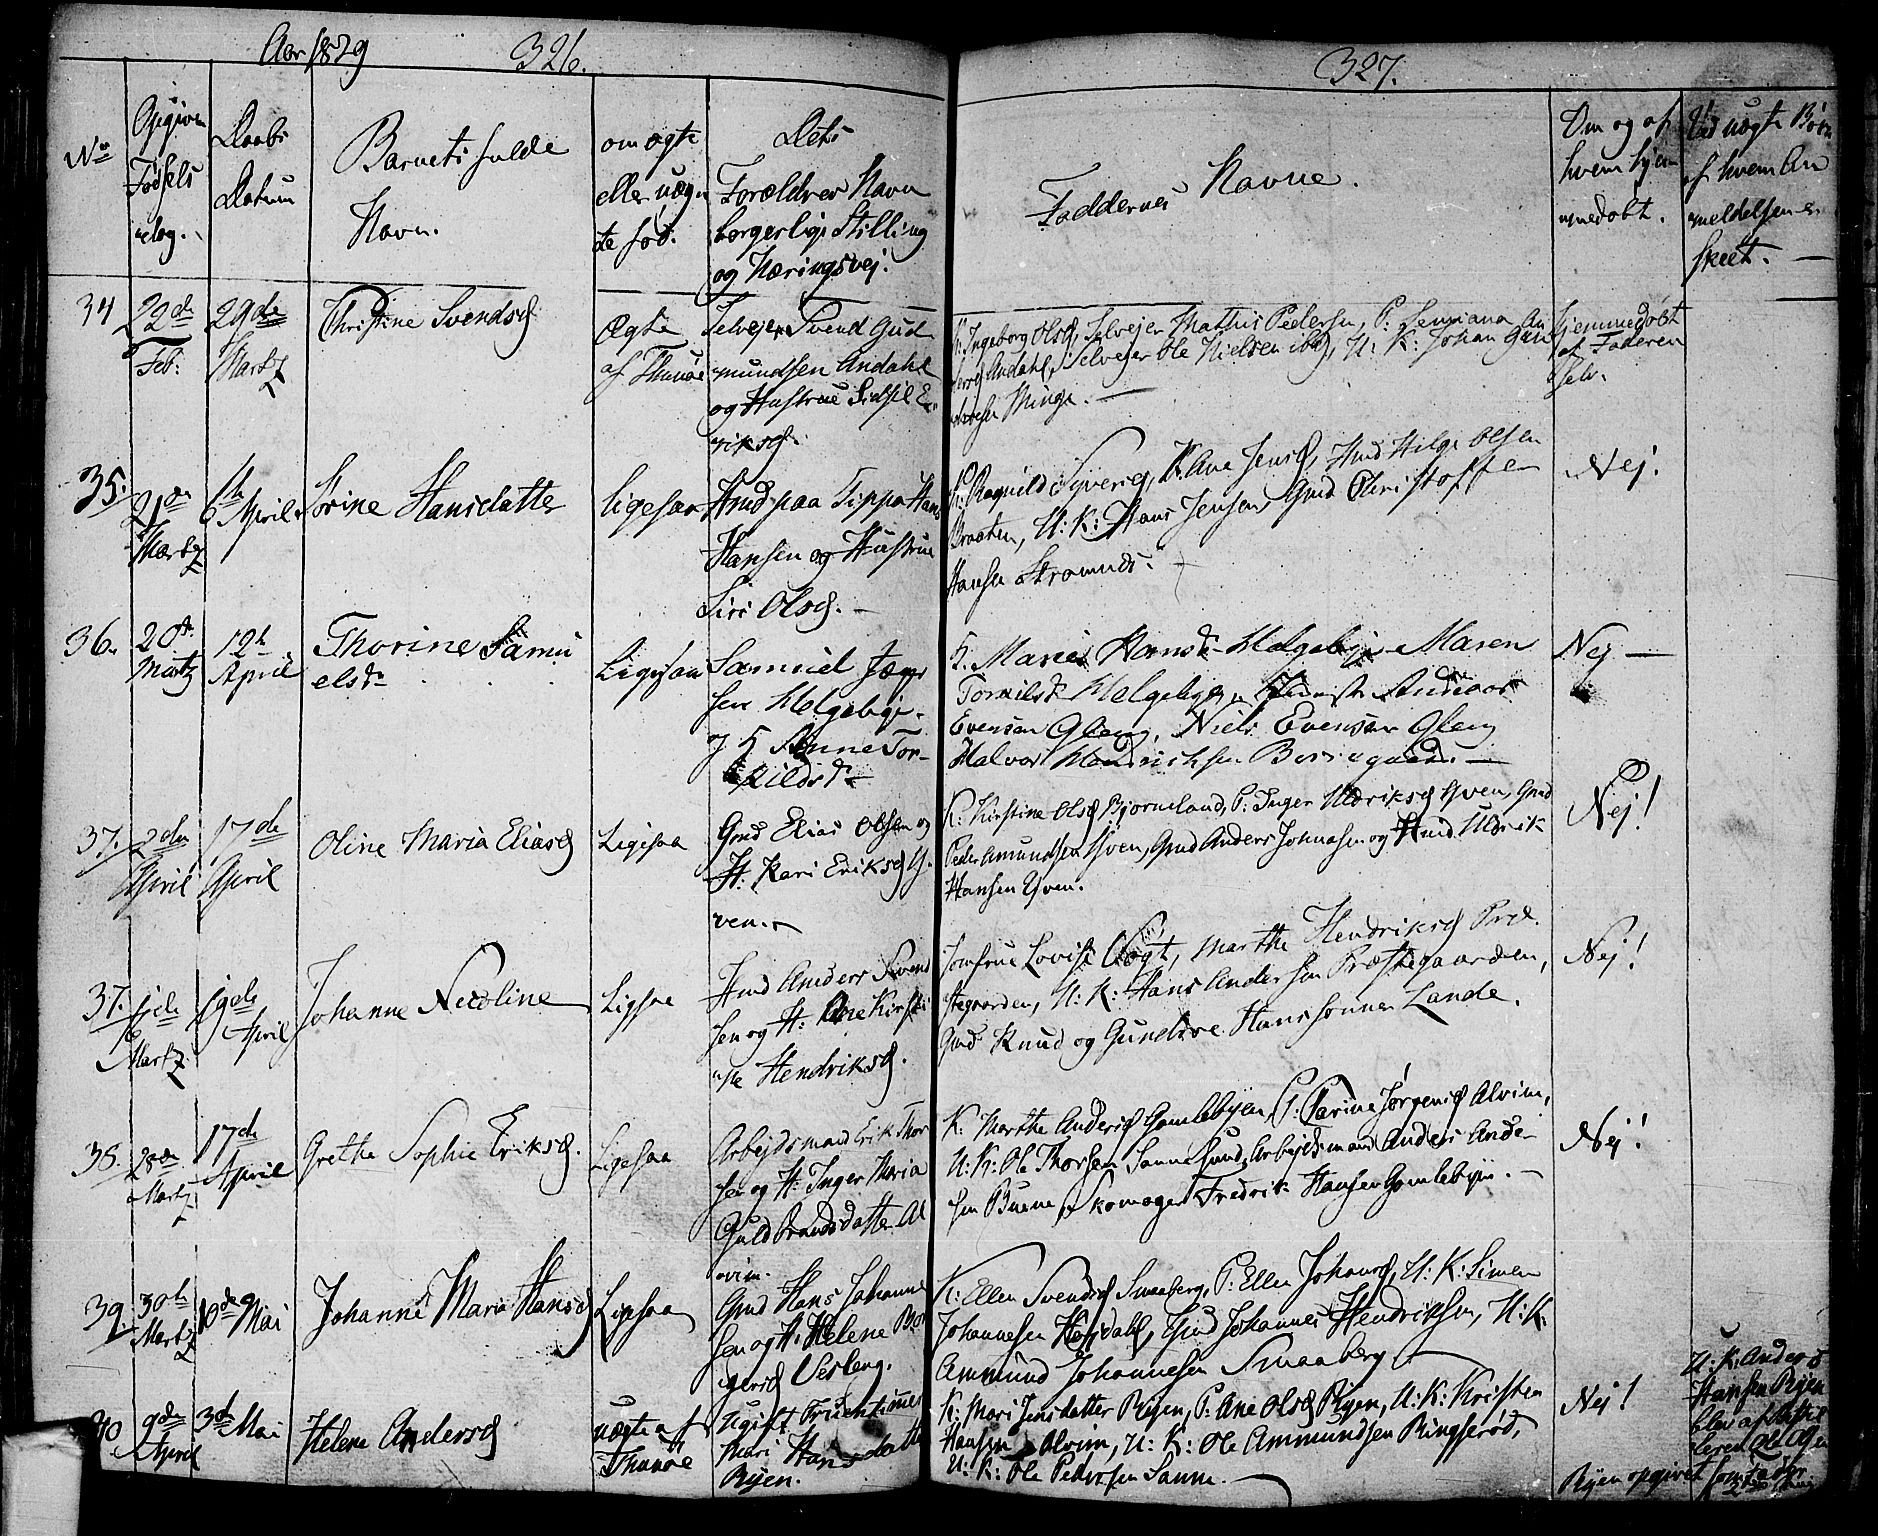 Aar 1829
326.
327.
No
Opgiven
Fødsels
dag.
Daabs
Datum
Barnets fulde
Navn.
om ægte
eller uægn
te fød.
Dets
Forældres Navn
borgerlige Stilling
og Næringsvej.
Faddernes Navne.
Om og af
hvem hjem
medøbt.
Ved uægte Børn
af hvem An
meldelsen er
skeet. —
34
22de
Feb:
29de
Martz
Christine Svendsd
Ægte
af Thunøe
Selvejer Svend Gud
mundsen Andahl
og Hustrue Sidsel E
riksd.
K. Ingeborg Olsd, Selvejer Mathis Pedersen, P:
Andahl, Selvejer Ole Nielsen ibd, U. K. Johan
Minge. —
Hjemmedøbt
af Faderen
selv.
35.
21de
Martz
6th April
Sørine Hansdatter
Ligesaa
Hmd paa Tippa Hans
Hansen og Hustrue
Siri Olsd. —
K. Ragnild Syversd, P: Ane Jensd, Hmd Helge Olsen
Braaten, U: K: Hans Jensen, Gmd Christoffer
Hansen
Nej.
36.
20de
Martz
12th
April
Thorine Samu
elsd.
Ligesaa
Samuel Jæger
sen Helgebye
og H Anne Tor-
kildsd —
K. Maria Hansd Helgebye Maren
Torkilsd Helgebye,
Evensen Gleng, Niels Evensen Gleng
Halvor Hendrichsen Borregaard. —
Nej —
37.
2den
April
17de
April
Oline Maria Eliasd
Ligesaa
Gmd Elias Olsen og
H. Kari Eriksd Y-
ven. —
K. Kirstine Olsd Bjørneland, P: Inger Uldriksd Yven, Gmd
Peder Amundsen Yven, Gmd Anders Johnasen og Hmd Uldrik
Hansen Yven.
Nej!
37.
6de
Martz
19de
April
Johanne Nicoline
Ligesaa
Hmd Anders Svend
sen og H: Ane Kirsti
ne Hendriksd.
Jomfrue Lovise Vogt, Marthe Hendriksd Præ
stegaarden, U: K: Hans Andersen Præstegaarden,
Gmd Knud og Gundere Hanssønner Lande.
Nej!
38.
28de
Martz
17de
April
Grethe Sophie Eriksd.
Ligesaa
Arbejdsmand Erik Thor
sen og H: Inger Maria
Guldbrandsdatter Al
vim.
K. Marthe Andersd Gamlebyen, P: Karine Jørgensd Alvim,
U: K: Ole Thorsen Sannesund, Arbejdsmand Anders Ander
sen Buene, Skomager Fredrik Hansen Gamlebyen. —
Nej!
39
30th
Martz
10de Mai
Johanne Maria Hansd
Ligesaa
Gmd Hans Johanne
sen og H: Helene Bør
gersd Vesteng.
K: Ellen Svendsd Smaaberg, P: Ellen Johansd, U: K: Simen
Johannesen Hafsdahl, Gmd Johannes Hendriksen, U: K.
Ammund Johannesen Smaaberg —
40
9de
April
3de Mai
Helene Andersd
uægte af
Thunøe
Ugift Fruentimmer
Mari Hansdatter
Ryen.
K: Mari Jensdatter Ryen, P: Ane Olsd Ryen, U: K: Kristen
Hansen Alvim, U: K: Ole Ammundsen Ringserød,
U: K: Ole Pedersen Sanne. —
Nej!
U: K. Anders
Hansen Ryen
blev af
Ole Olsen
Ryen opgivet som Fader